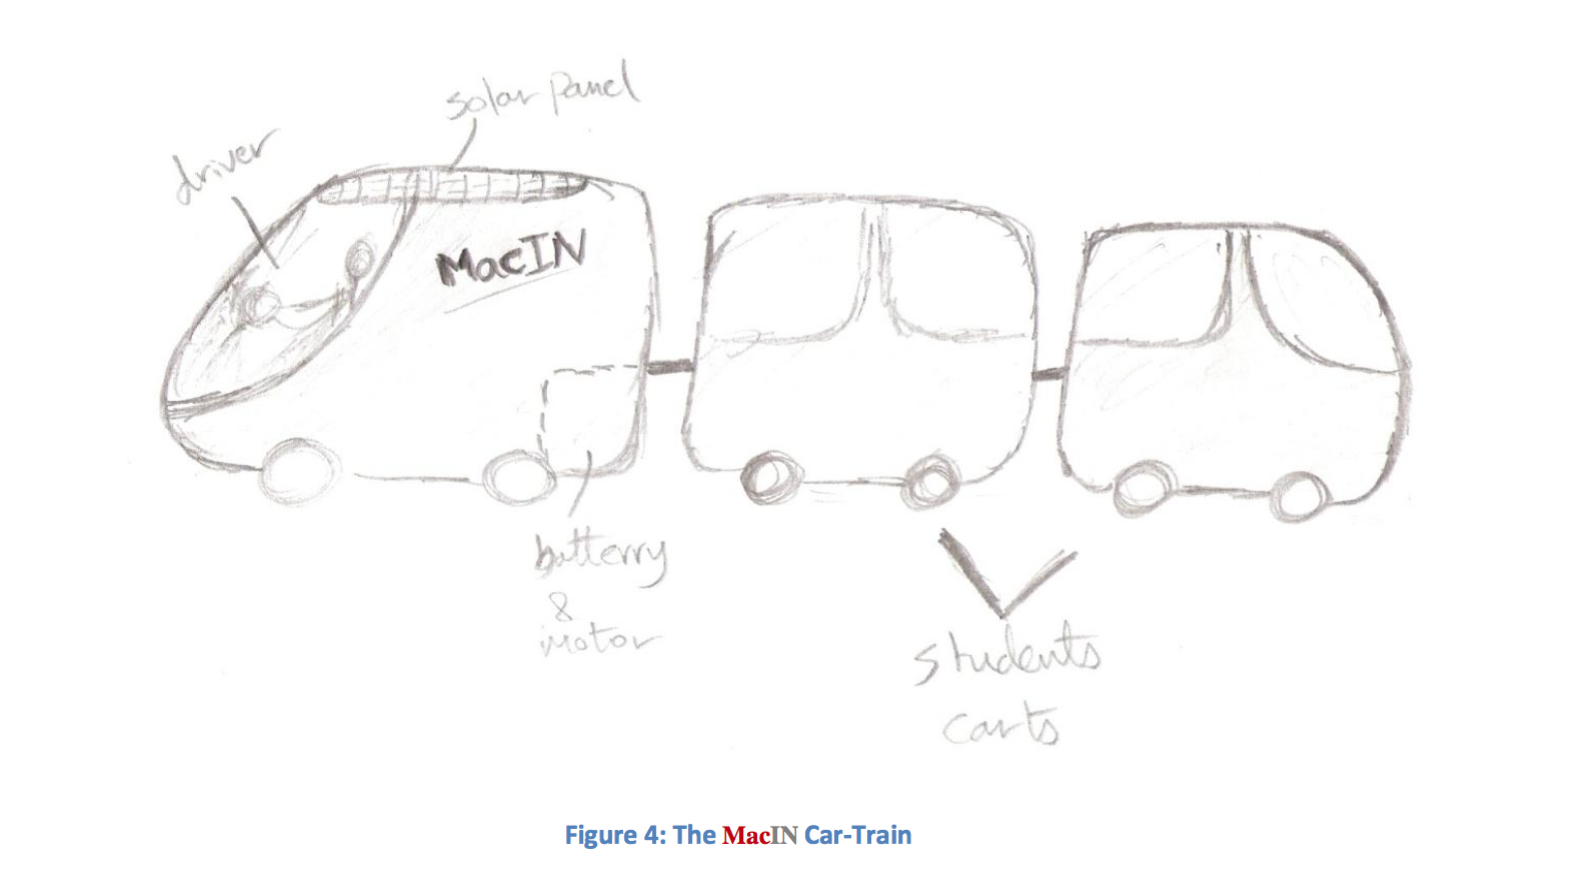 solar panel
driver
MacIN
batterry
&
motor
students
carts
Figure 4: The MacIN Car-Train